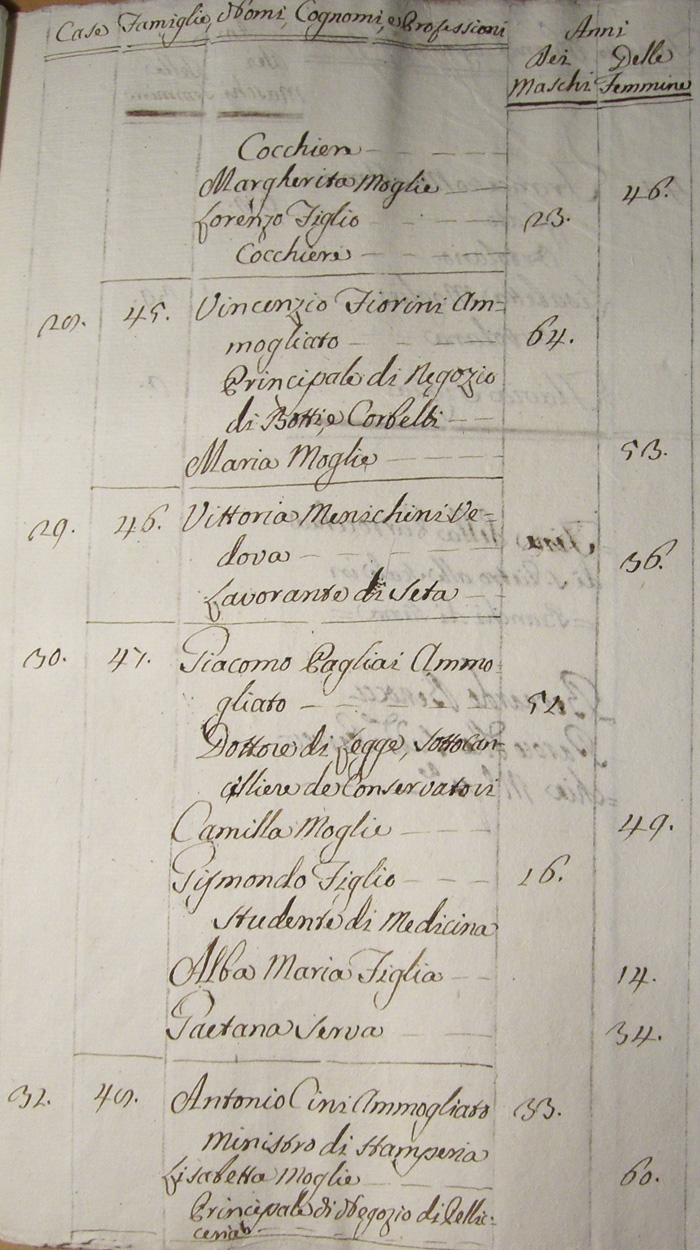 Case Famiglie, Nomi, Cognomi, e Professioni
Anni
Dei Maschi
Delle Femmine
Cocchiere
Margherita Moglie 46.
Lorenzo Figlio 23.
Cocchiere
28. 45. Vincenzio Fiorini Am=
mogliato 64.
Principale di Negozio
di Botti, e Corbelli
Maria Moglie 53.
29. 46. Vittoria Menichini Ve=
dova 36.
Lavorante di Seta
30. 47. Giacomo Pagliai Ammo
gliato 52.
Dottore di Legge, Sottocan=
celliere de Conservatori
Camilla Moglie 49.
Gismondo Figlio 16.
Studente di Medicina
Alba Maria Figlia 14.
Gaetana Serva 34.
32. 48. Antonio Cini Ammogliato 33.
Ministro di Stamperia
Lisabetta Moglie 60.
Principale di Negozio di Pellic=
ceria